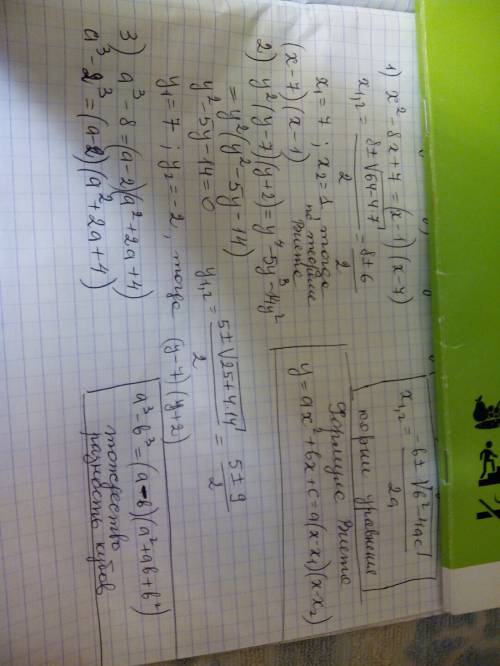 1) x² - 8x + 7 = (x - 1)(x - 7)
x₁,₂ = (8 ± √(64 - 4·7))/2 = (8 ± 6)/2
x₁ = 7 ; x₂ = 1, тогда
по теореме
Виета
(x - 7)(x - 1)
2) y²(y - 7)(y + 2) = y⁴ - 5y³ - 14y²
= y²(y² - 5y - 14)
y² - 5y - 14 = 0
y₁,₂ = (5 ± √(25 + 4·14))/2 = (5 ± 9)/2
y₁ = 7 ; y₂ = -2, тогда (y - 7)(y + 2)
3) a³ - 8 = (a - 2)(a² + 2a + 4)
a³ - 2³ = (a - 2)(a² + 2a + 4)
x₁,₂ = (-b ± √(b² - 4ac))/2a
корни уравнения
Формула Виета
y = ax² + bx + c = a(x - x₁)(x - x₂)
a³ - b³ = (a - b)(a² + ab + b²)
тождество
разность кубов